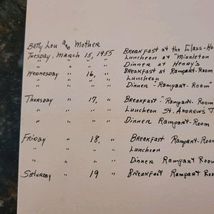 Betty Lou and Mother
Tuesday, March 15, 1955 Breakfast at the Glass-Ho
" " " " Luncheon at Middleton
" " " " Dinner at Henry's
Wednesday " 16, " Breakfast at Rampart-Room
" " " " Luncheon
" " " " Dinner - Rampart-Room
Thursday " 17, " Breakfast - Rampart-Roo
" " " " Luncheon St. Andrews
" " " " Dinner Rampart-Room
Friday " 18, " Breakfast Rampart-Roo
" " " " Luncheon
" " " " Dinner Rampart Room
Saturday " 19 " Breakfast Rampart Roo